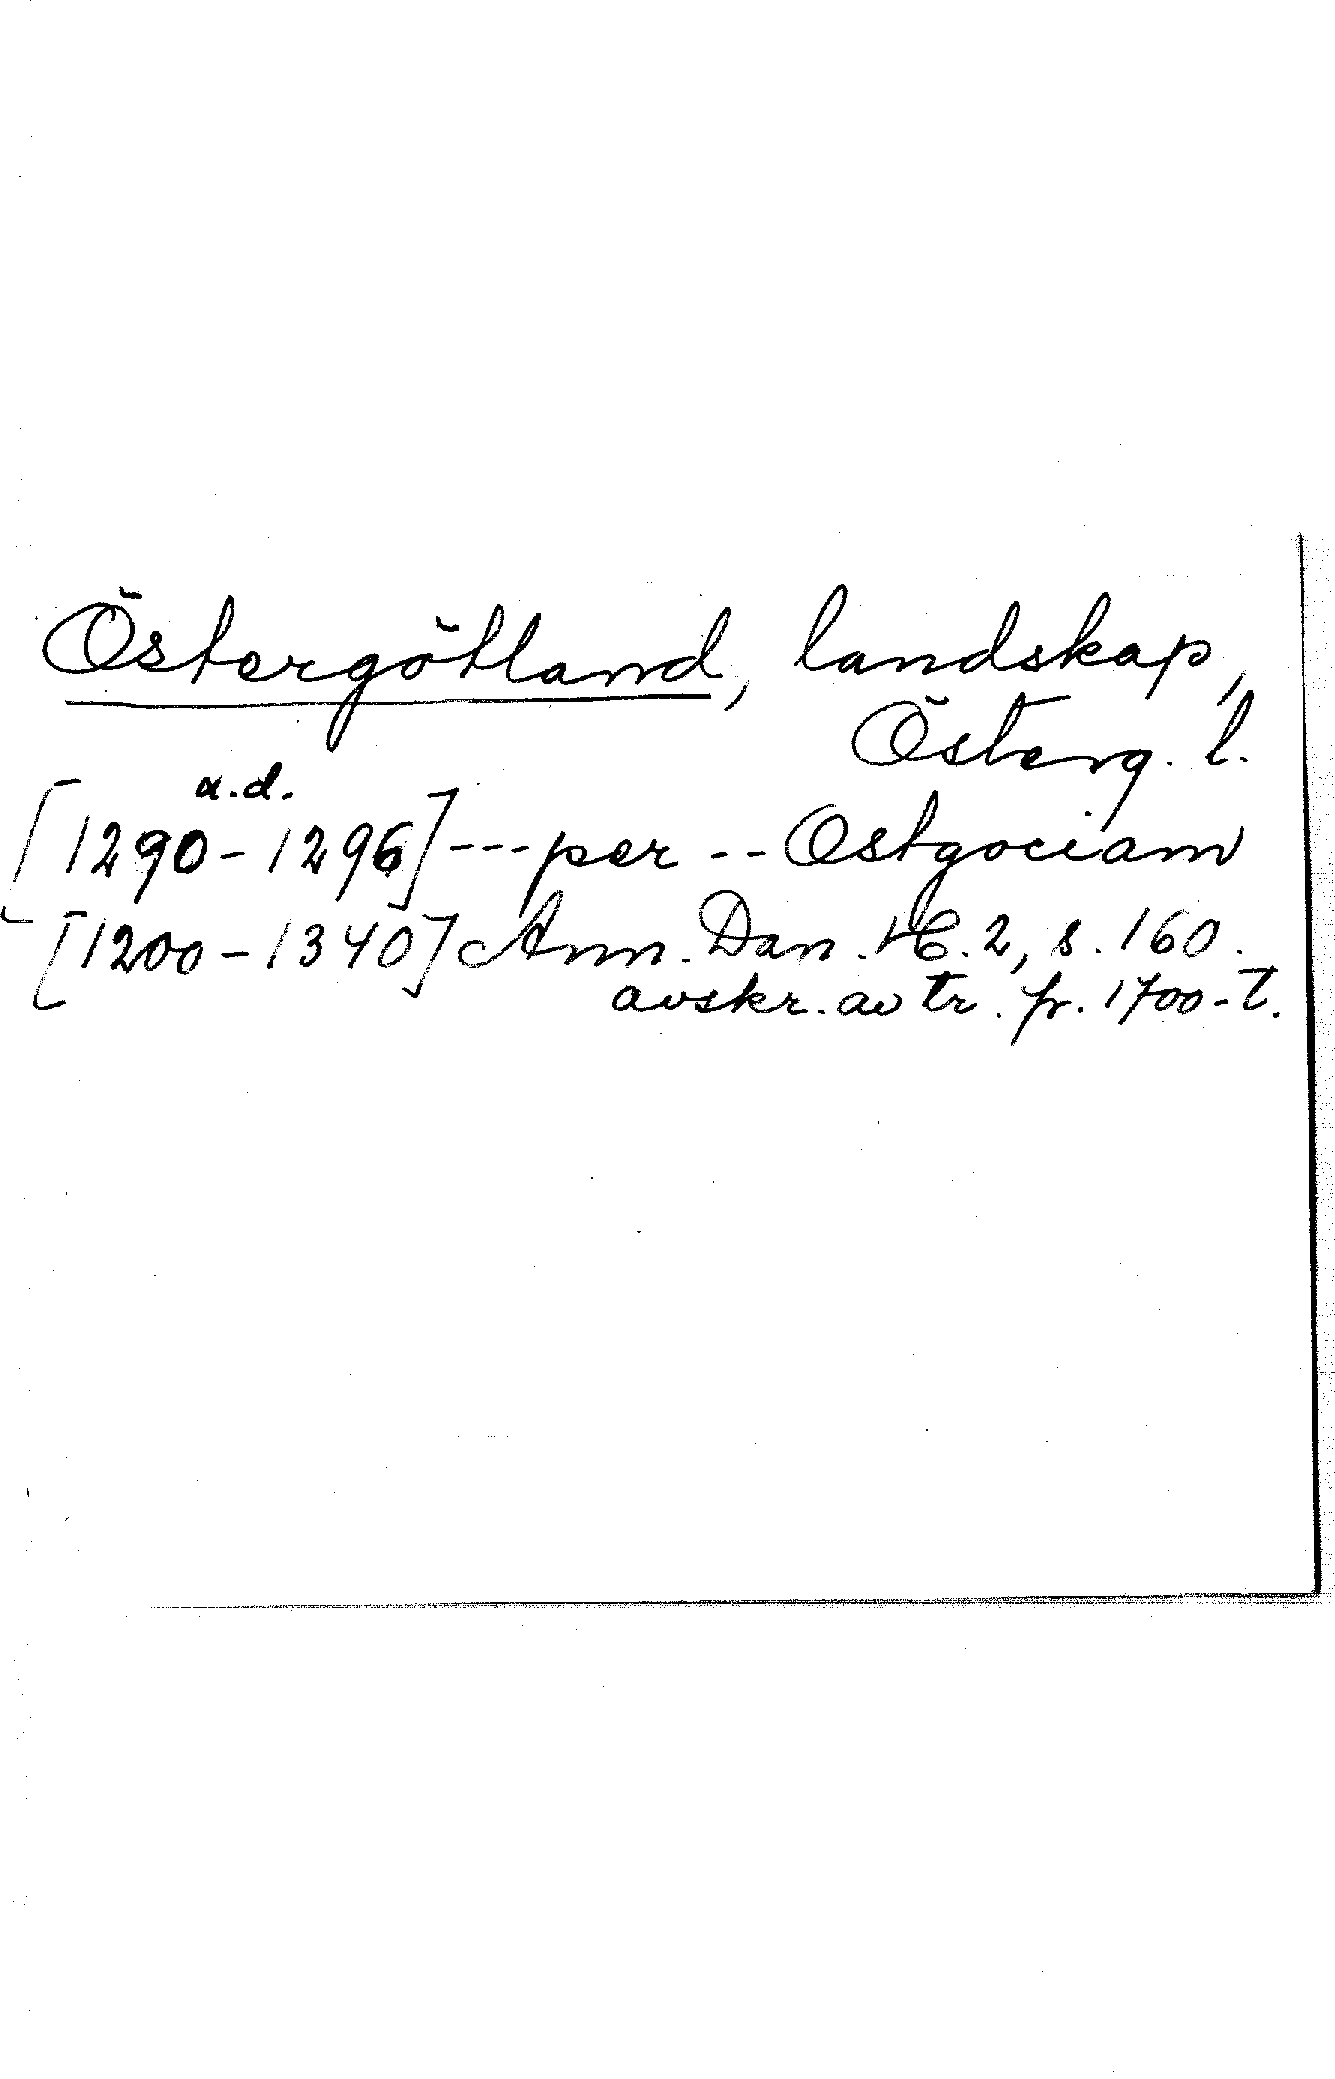 Östergötland, landskap,
Österg. l.
u.d.
[1290-1296] --- per -- Ostgociam
[1200-1340] Ann. Dan. H. 2, s. 160.
avskr. av tr. fr. 1700-t.